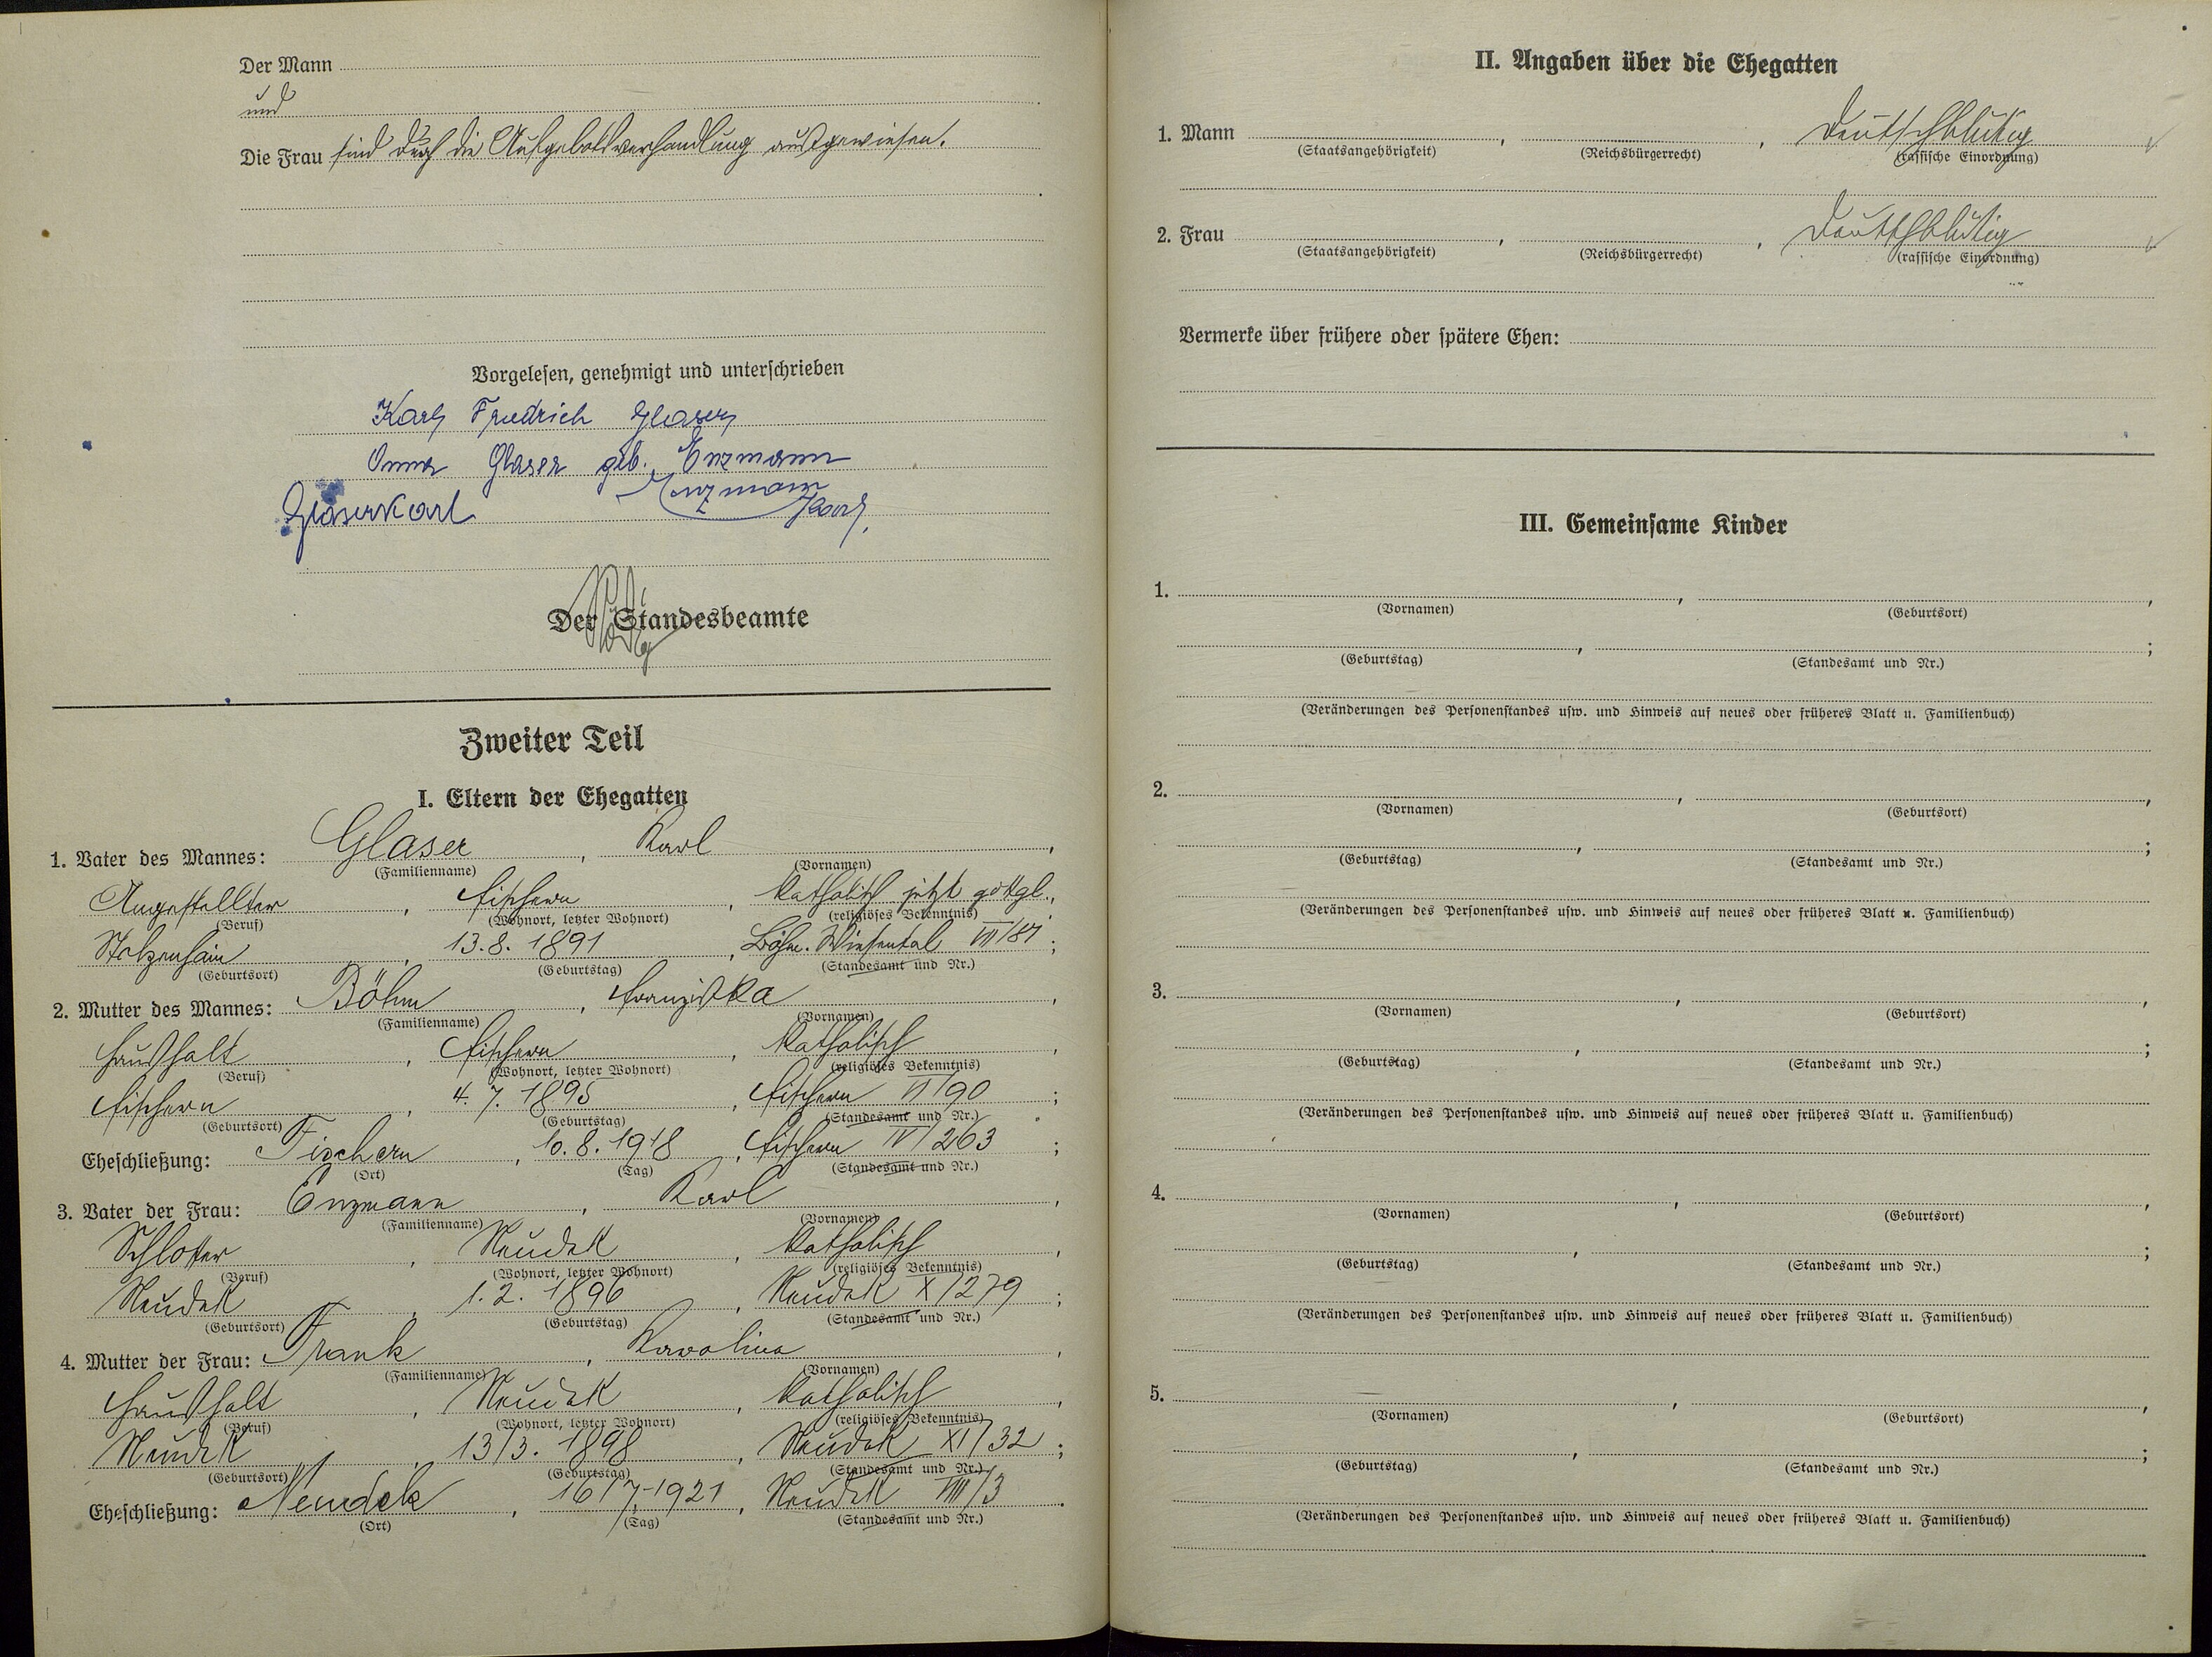 Der Mann
und
Die Frau sind durch die Aufgebotsverhandlung ausgewiesen.
Vorgelesen, genehmigt und unterschrieben
Karl Friedrich Glaser
Anna Glaser geb. Enzmann
Glaser Karl Enzmann Karl.
Der Standesbeamte
Zweiter Teil
I. Eltern der Ehegatten
1. Vater des Mannes: Glaser, Karl,
(Familienname) (Vornamen)
Angestellter, Fischern, katholisch jetzt gottgl.,
(Beruf) (Wohnort, letzter Wohnort) (religiöses Bekenntnis)
Stolzenhain, 13.8.1891, Böhm. Wiesental VII/87;
(Geburtsort) (Geburtstag) (Standesamt und Nr.)
2. Mutter des Mannes: Böhm, Franziska,
(Familienname) (Vornamen)
Haushalt, Fischern, katholisch,
(Beruf) (Wohnort, letzter Wohnort) (religiöses Bekenntnis)
Fischern, 4.7.1895, Fischern VI/90;
(Geburtsort) (Geburtstag) (Standesamt und Nr.)
Eheschließung: Fischern, 10.8.1918, Fischern IV/263;
(Ort) (Tag) (Standesamt und Nr.)
3. Vater der Frau: Enzmann, Karl,
(Familienname) (Vornamen)
Schlosser, Neudek, katholisch,
(Beruf) (Wohnort, letzter Wohnort) (religiöses Bekenntnis)
Neudek, 1.2.1896, Neudek X/279;
(Geburtsort) (Geburtstag) (Standesamt und Nr.)
4. Mutter der Frau: Frank, Karolina,
(Familienname) (Vornamen)
Haushalt, Neudek, katholisch,
(Beruf) (Wohnort, letzter Wohnort) (religiöses Bekenntnis)
Neudek, 13/3. 1898, Neudek XI/32;
(Geburtsort) (Geburtstag) (Standesamt und Nr.)
Eheschließung: Neudek, 16/7.1921, Neudek VIII/3.
(Ort) (Tag) (Standesamt und Nr.)
II. Angaben über die Ehegatten
1. Mann , , deutschblütig
(Staatsangehörigkeit) (Reichsbürgerrecht) (rassische Einordnung)
2. Frau , , deutschblütig
(Staatsangehörigkeit) (Reichsbürgerrecht) (rassische Einordnung)
Vermerke über frühere oder spätere Ehen:
III. Gemeinsame Kinder
1. , ,
(Vornamen) (Geburtsort)
, ;
(Geburtstag) (Standesamt und Nr.)
(Veränderungen des Personenstandes usw. und Hinweis auf neues oder früheres Blatt u. Familienbuch)
2. , ,
(Vornamen) (Geburtsort)
, ;
(Geburtstag) (Standesamt und Nr.)
(Veränderungen des Personenstandes usw. und Hinweis auf neues oder früheres Blatt u. Familienbuch)
3. , ,
(Vornamen) (Geburtsort)
, ;
(Geburtstag) (Standesamt und Nr.)
(Veränderungen des Personenstandes usw. und Hinweis auf neues oder früheres Blatt u. Familienbuch)
4. , ,
(Vornamen) (Geburtsort)
, ;
(Geburtstag) (Standesamt und Nr.)
(Veränderungen des Personenstandes usw. und Hinweis auf neues oder früheres Blatt u. Familienbuch)
5. , ,
(Vornamen) (Geburtsort)
, ;
(Geburtstag) (Standesamt und Nr.)
(Veränderungen des Personenstandes usw. und Hinweis auf neues oder früheres Blatt u. Familienbuch)